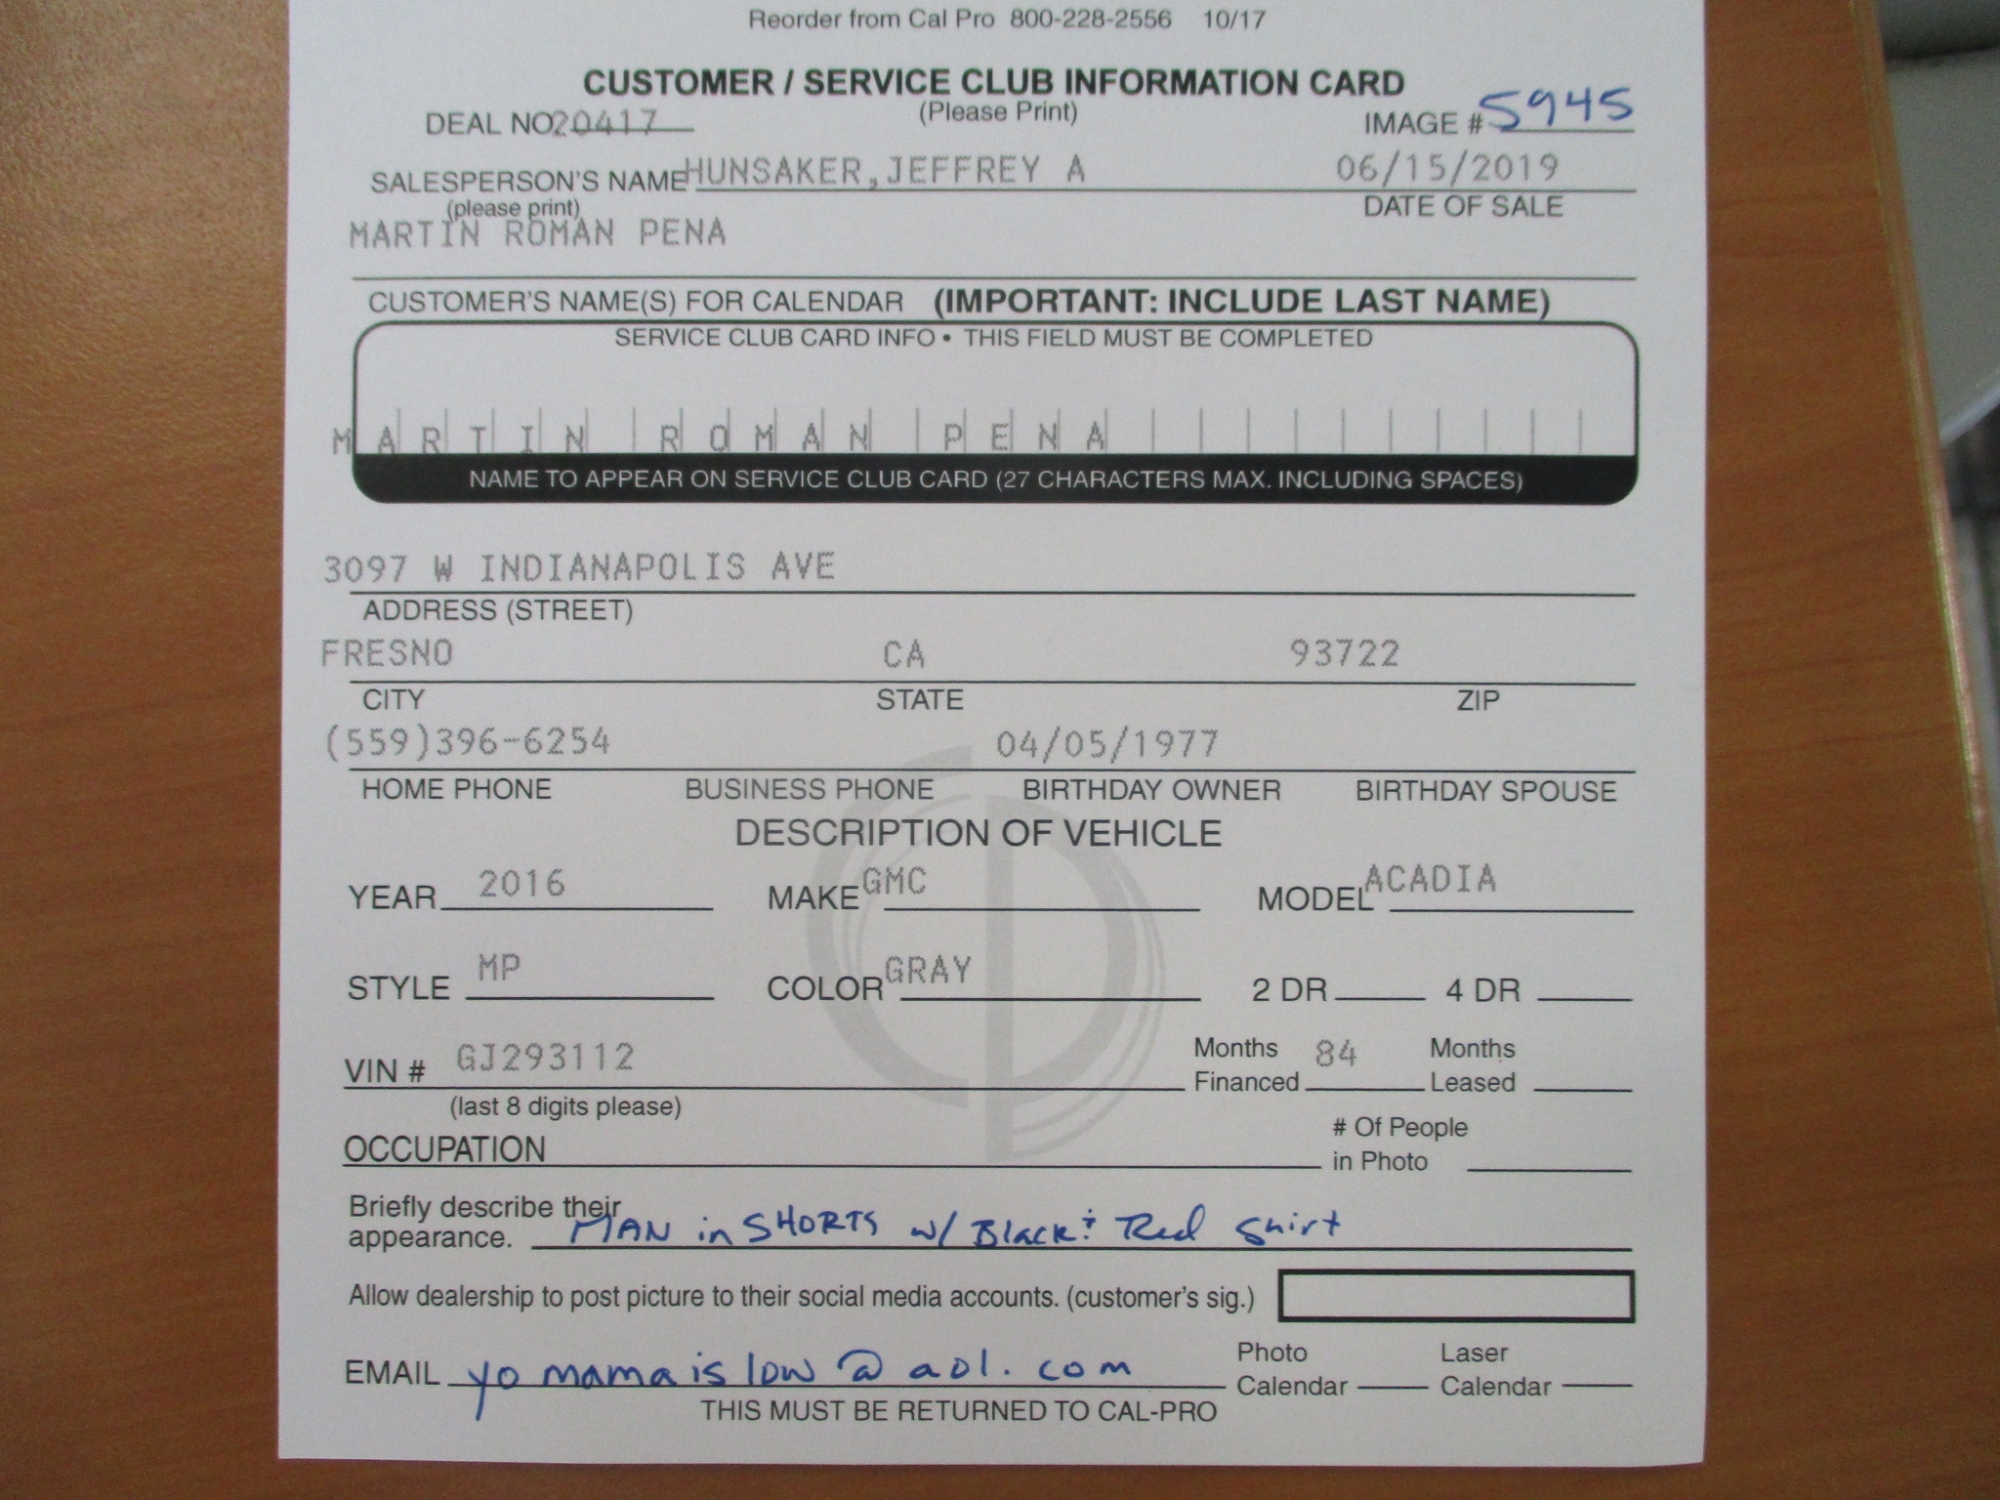 Reorder from Cal Pro 800-228-2556 10/17
CUSTOMER / SERVICE CLUB INFORMATION CARD
(Please Print)
DEAL NO 20417 IMAGE # 5945
SALESPERSON'S NAME HUNSAKER,JEFFREY A 06/15/2019
(please print) DATE OF SALE
MARTIN ROMAN PENA
CUSTOMER'S NAME(S) FOR CALENDAR (IMPORTANT: INCLUDE LAST NAME)
SERVICE CLUB CARD INFO • THIS FIELD MUST BE COMPLETED
MARTIN ROMAN PENA
NAME TO APPEAR ON SERVICE CLUB CARD (27 CHARACTERS MAX. INCLUDING SPACES)
3097 W INDIANAPOLIS AVE
ADDRESS (STREET)
FRESNO CA 93722
CITY STATE ZIP
(559)396-6254 04/05/1977
HOME PHONE BUSINESS PHONE BIRTHDAY OWNER BIRTHDAY SPOUSE
DESCRIPTION OF VEHICLE
YEAR 2016 MAKE GMC MODEL ACADIA
STYLE MP COLOR GRAY 2 DR 4 DR
VIN # GJ293112 Months Financed 84 Months Leased
(last 8 digits please)
OCCUPATION # Of People in Photo
Briefly describe their
appearance. MAN in SHORTS w/ Black & Red Shirt
Allow dealership to post picture to their social media accounts. (customer's sig.)
EMAIL yo mama is low @ aol. com Photo Calendar Laser Calendar
THIS MUST BE RETURNED TO CAL-PRO